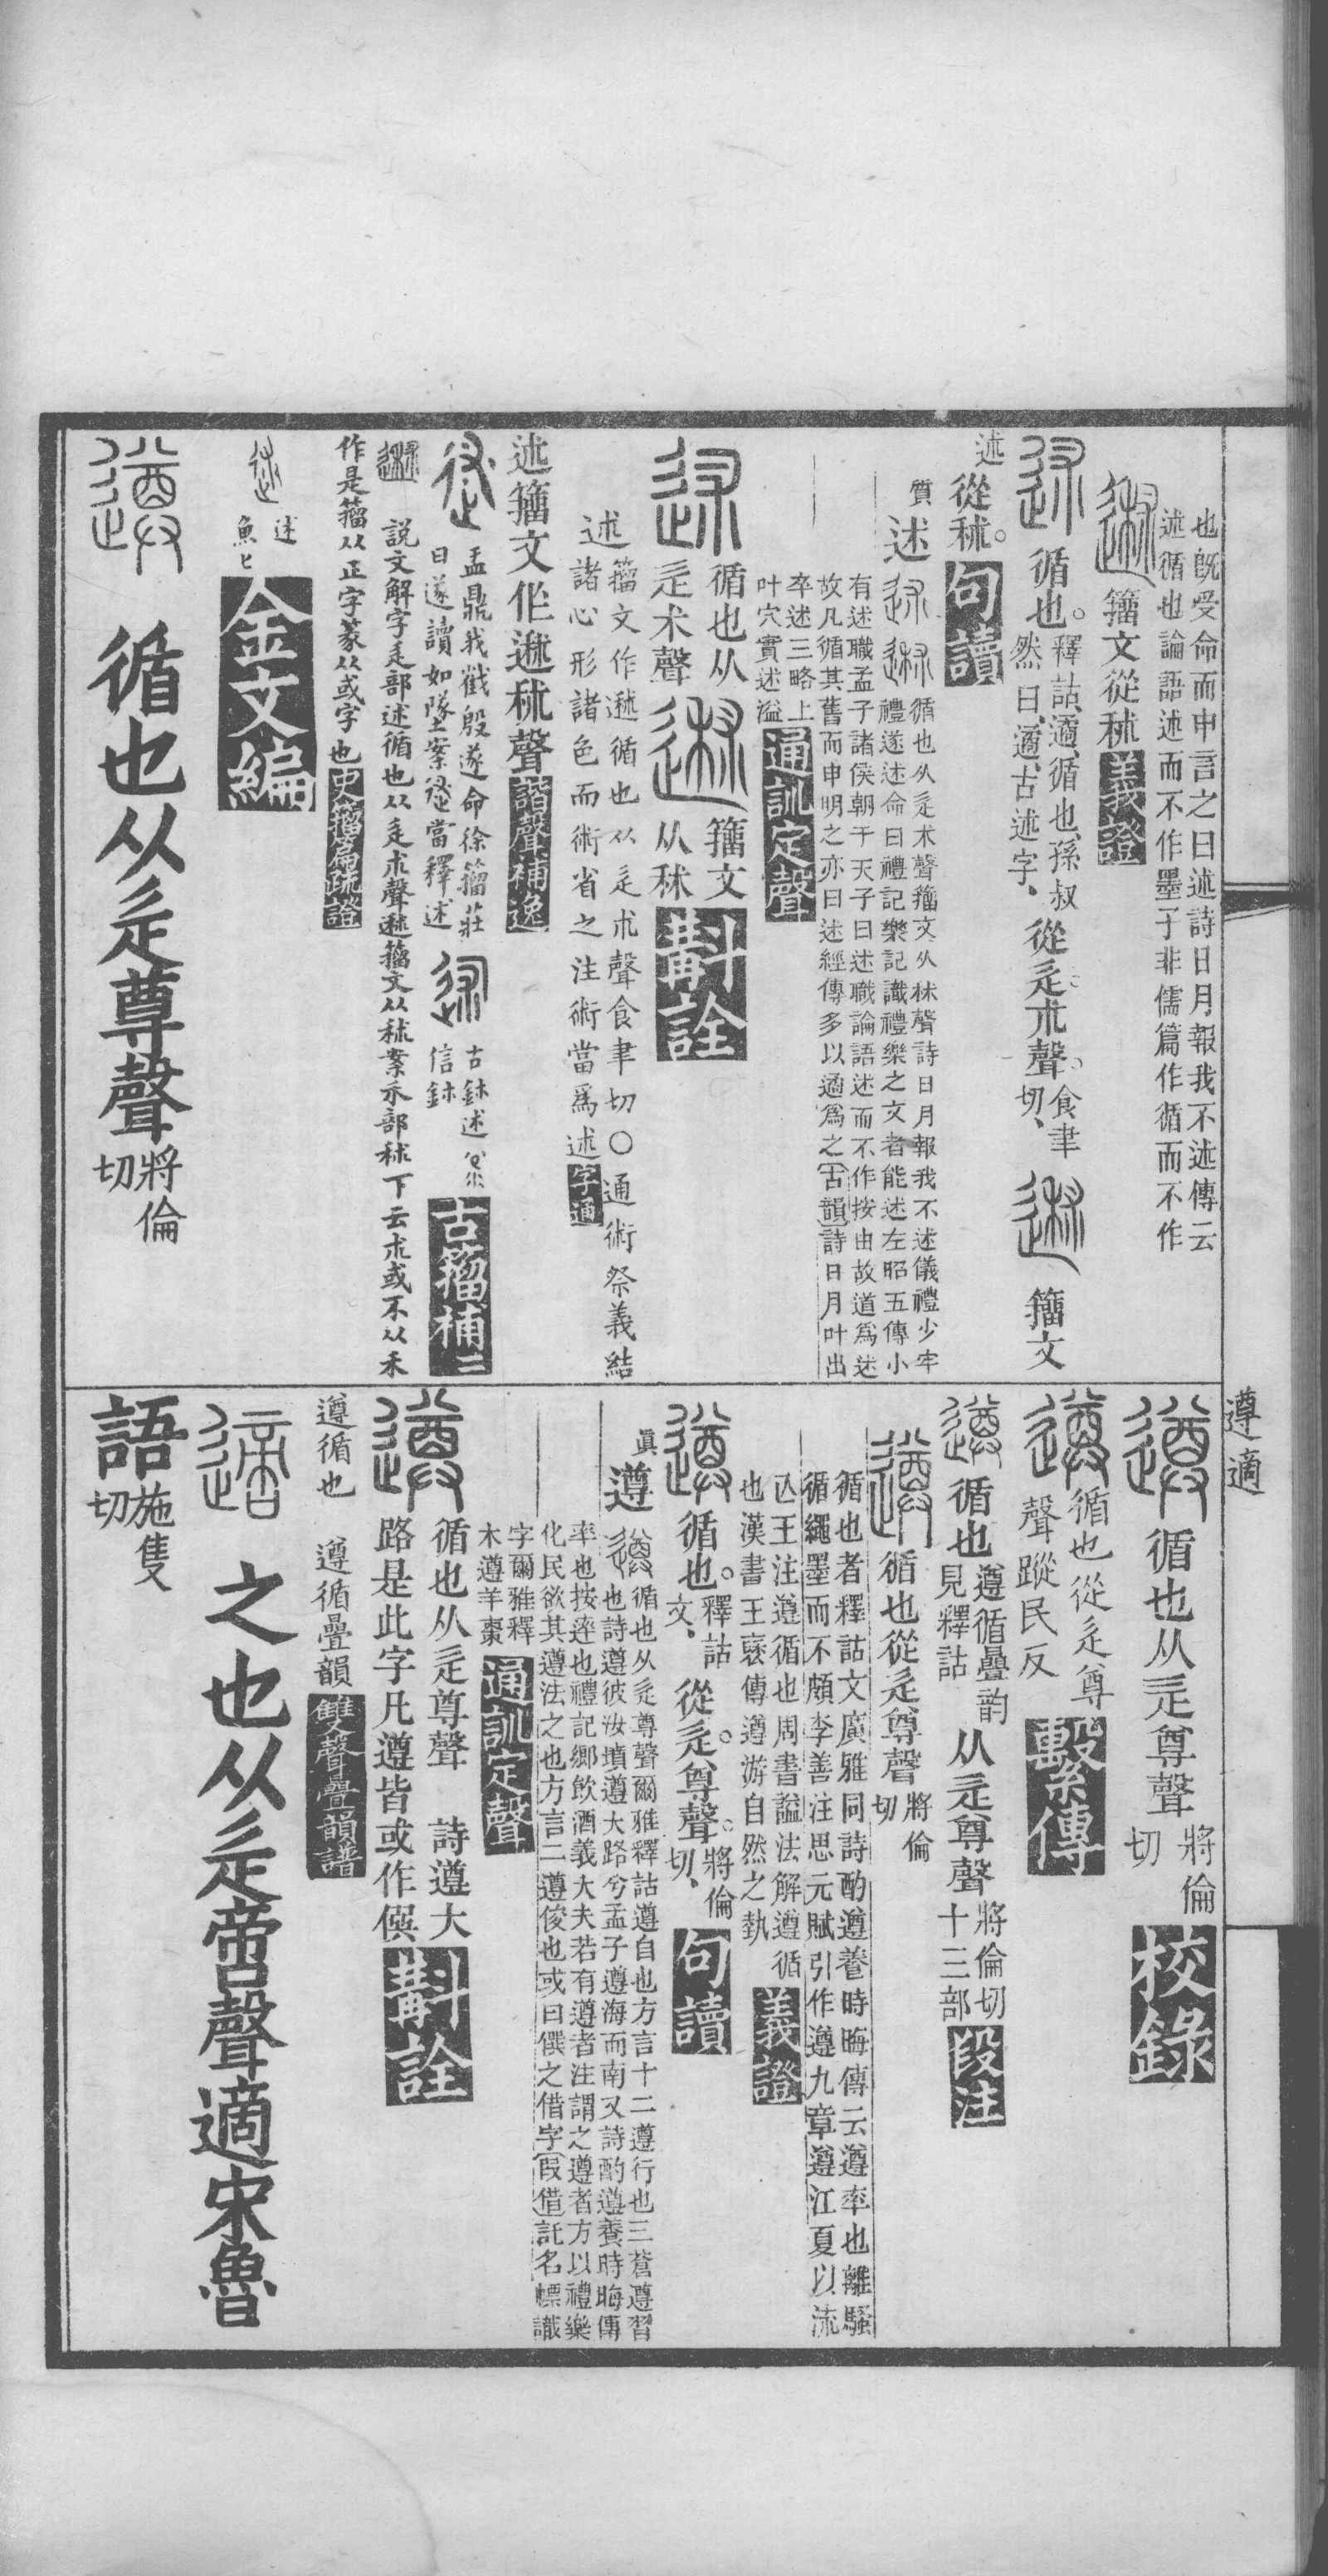 也旣受命而申言之曰述詩日月報我不述傳云
述循也論語述而不作墨子非儒篇作循而不作
籒文從秫義證
循也。釋詁、遹、循也、孫叔
然曰、遹、古述字、
從辵、朮聲。食聿
切、
籒文
述從秫。句讀
質
述
循也从辵朮聲籒文从秫聲詩日月報我不述儀禮少牢
禮遂述命曰禮記樂記識禮樂之文者能述左昭五傳小
有述職孟子諸侯朝于天子曰述職論語述而不作按由故道爲述
故凡循其舊而申明之亦曰述經傳多以遹爲之古韻詩日月叶出
卒述三略上
叶穴實述溢
通訓定聲
循也从
辵朮聲
籒文
从秫
斠詮
述籒文作䢤循也从辵朮聲食聿切〇通術祭義結
諸心形諸色而術省之注術當爲述字通
述籒文作䢤秫聲諧聲補逸
盂鼎我䎽殷遂命徐籒莊
曰遂讀如隊案當釋述
古鉢述
信鉢
古籒補二
說文解字辵部述循也从辵朮聲䢤籒文从秫案禾部秫下云朮或不从禾
作是籒从正字篆从或字也史籒篇疏證
述
魚匕
金文編
循也从辵尊聲將倫
切
遵適
循也从辵尊聲將倫
切
校錄
循也從辵尊
聲蹤民反
繫傳
循也遵循疊韵
見釋詁
从辵尊聲將倫切
十三部
段注
循也從辵尊聲將倫
切
循也者釋詁文廣雅同詩酌遵養時晦傳云遵率也離騷
循繩墨而不頗李善注思元賦引作遵九章遵江夏以流
亾王注遵循也周書謚法解遵循
也漢書王襃傳遵游自然之埶
義證
循也。釋詁
文、
從辵、尊聲。將倫
切、
句讀
眞
遵
循也从辵尊聲爾雅釋詁遵自也方言十二遵行也三蒼遵習
也詩遵彼汝墳遵大路兮孟子遵海而南又詩酌遵養時晦傳
率也按逹也禮記鄉飲酒義大夫若有遵者注謂之遵者方以禮樂
化民欲其遵法之也方言二遵俊也或曰僎之借字假借託名幖識
字爾雅釋
木遵羊棗
通訓定聲
循也从辵尊聲　詩遵大
路是此字凡遵皆或作僎
斠詮
遵循也　遵循疊韻雙聲疊韻譜
之也从辵啻聲適宋魯
語施隻
切